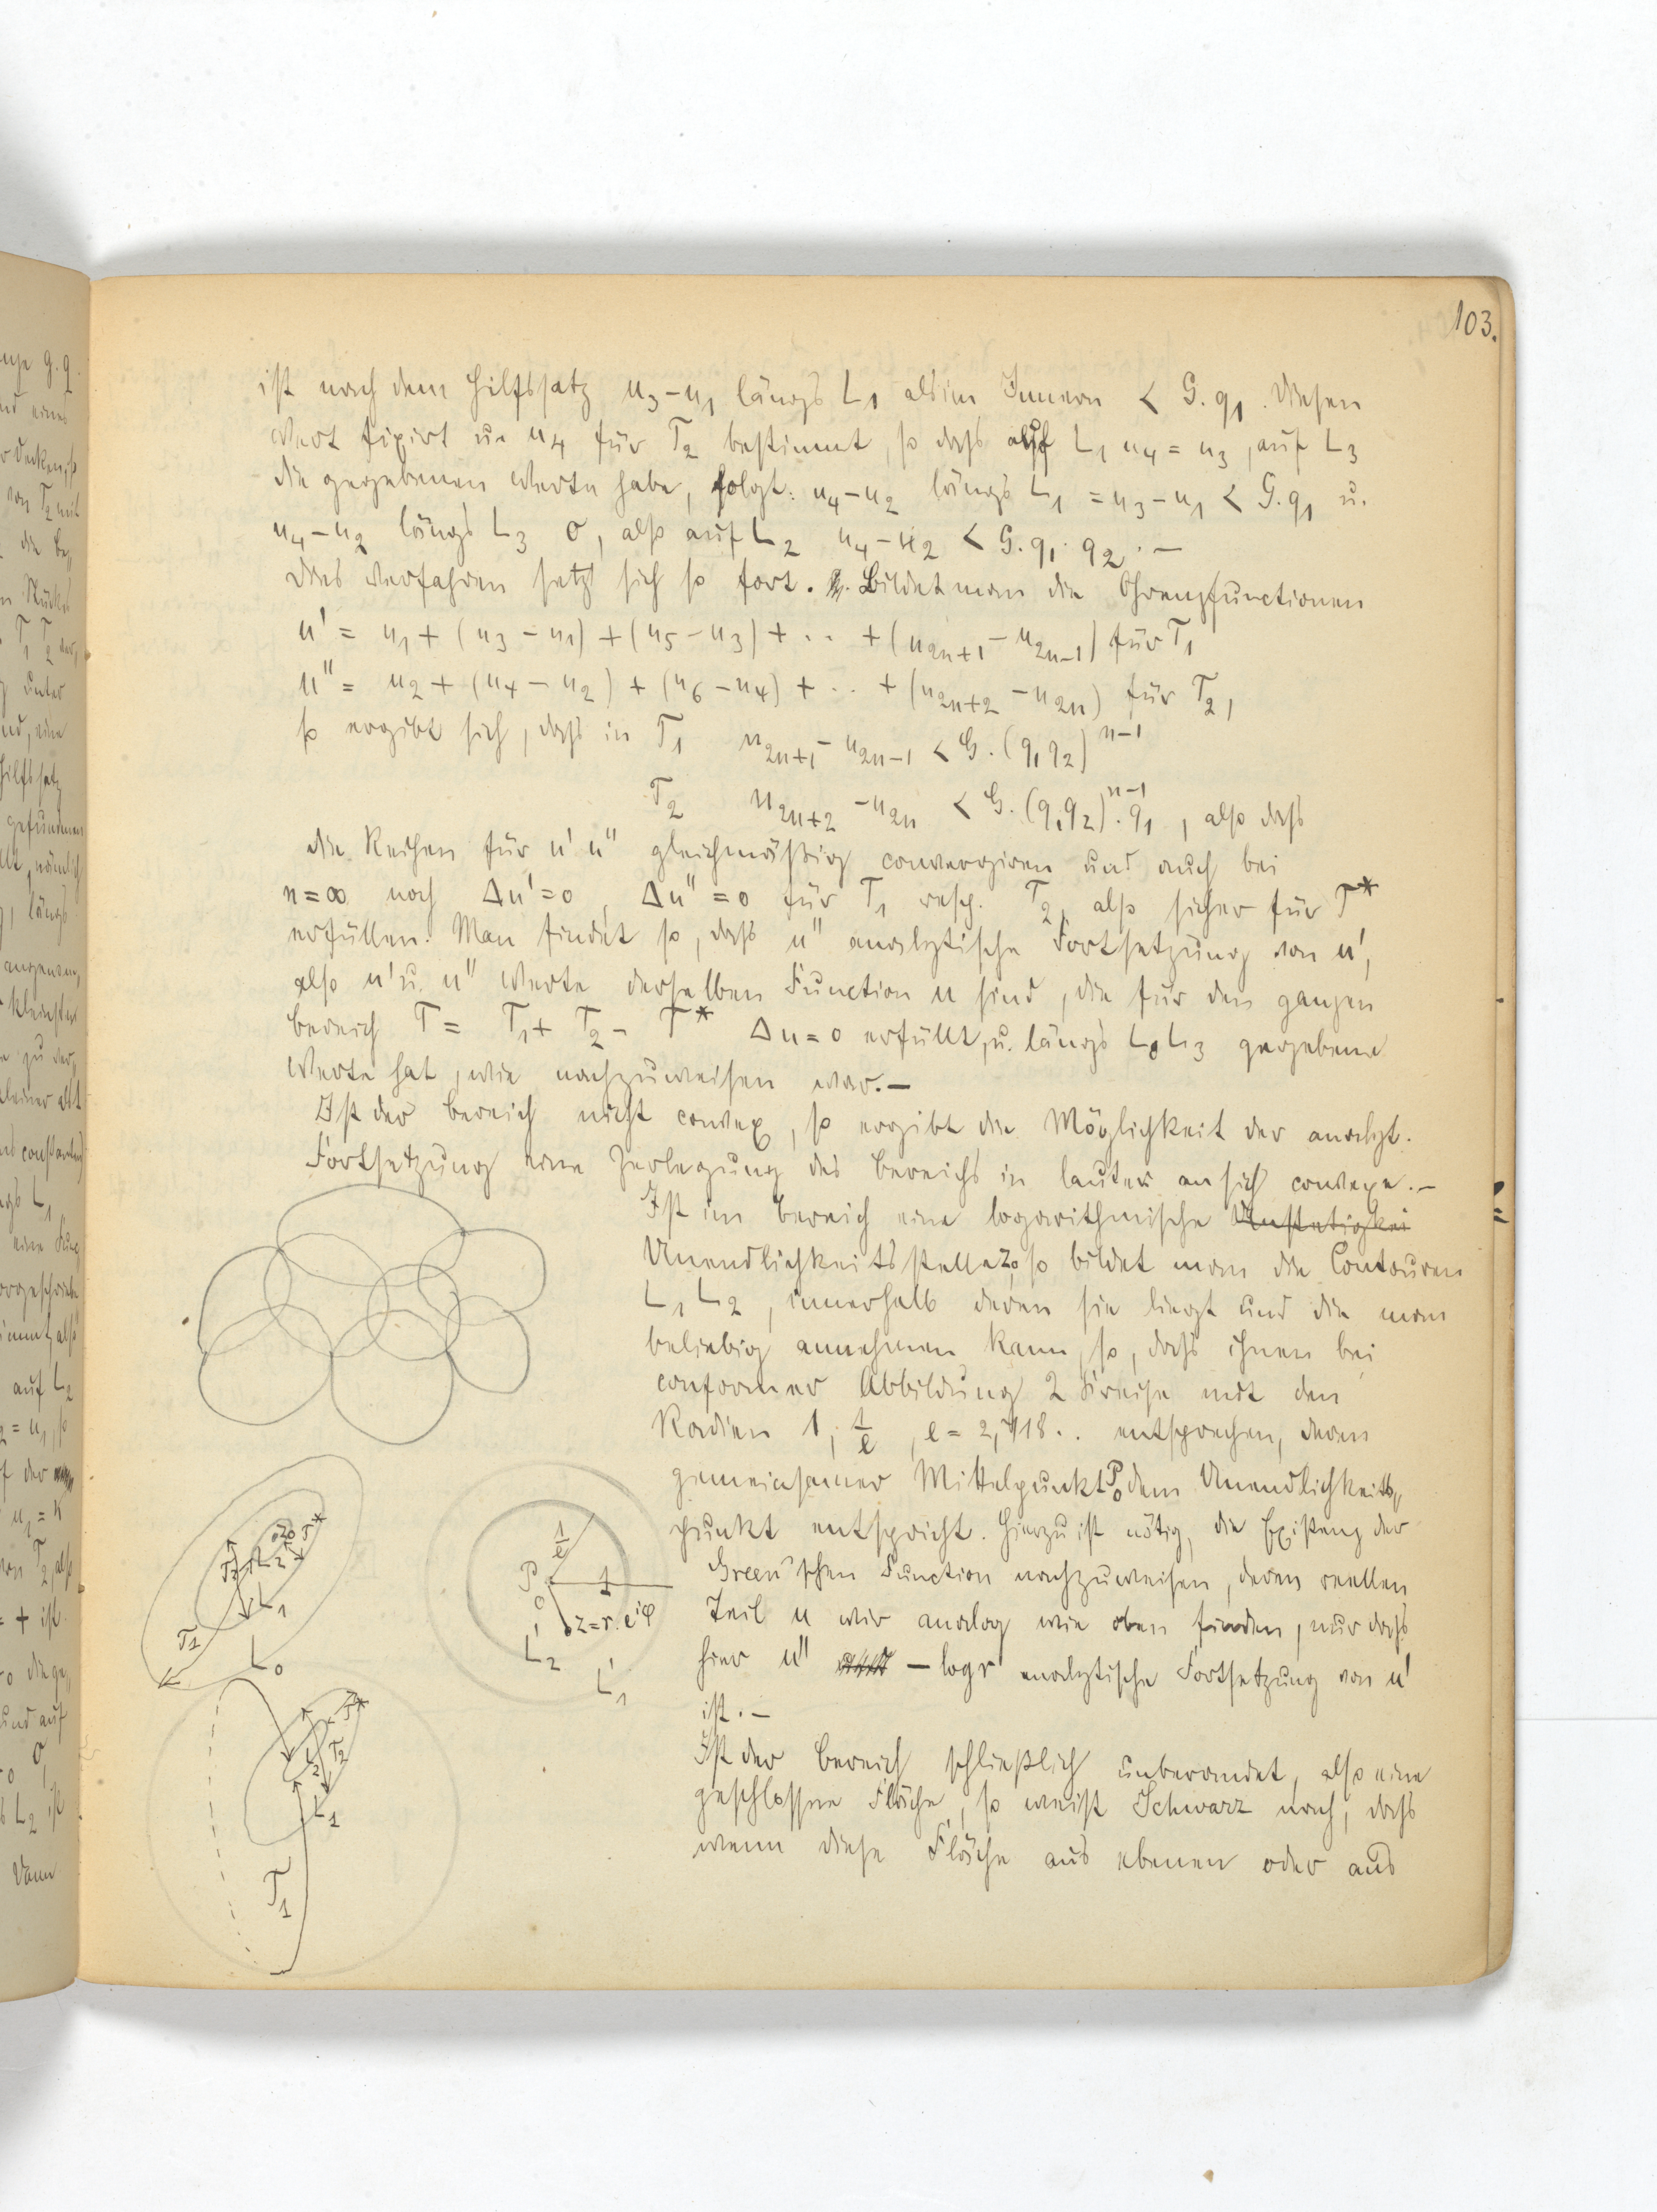 103.
ist nach dem Hilfssatz u₃-u₁ längs L₁ als im Innern < G.q₁. Diesen
Wert fixirt u. u₄ für T₂ bestimmt, so dass auf L₁ u₄ = u₃, auf L₃
die gegebenen Werte habe, folgt: u₄-u₂ längs L₁ = u₃-u₁ < G.q₁ u.
u₄-u₂ längs L₃ 0, also auf L₂ u₄-u₂ < G.q₁.q₂.—
Das Verfahren setzt sich so fort. Bildet man die Grenzfunctionen
u' = u₁ + (u₃ - u₁) + (u₅ - u₃) + .. + (u₂ₙ₊₁ - u₂ₙ₋₁) für T₁
u'' = u₂ + (u₄ - u₂) + (u₆ - u₄) + .. + (u₂ₙ₊₂ - u₂ₙ) für T₂,
so ergibt sich, dass in T₁ u₂ₙ₊₁ - u₂ₙ₋₁ < G.(q₁q₂)ⁿ⁻¹
T₂ u₂ₙ₊₂ - u₂ₙ < G.(q₁q₂)ⁿ⁻¹.q₁, also dass
die Reihen für u' u'' gleichmäßig convergiren und auch bei
n=∞ noch Δu'=0, Δu''=0 für T₁ resp. T₂, also sicher für T*
erfüllen. Man findet so, dass u'' analytische Fortsetzung von u',
also u' u. u'' Werte derselben Function u sind, die für den ganzen
Bereich T = T₁ + T₂ - T* Δu=0 erfüllt, u. längs L₀ L₃ gegebene
Werte hat, wie nachzuweisen war.—
Ist der Bereich nicht convex, so ergibt die Möglichkeit der analyt.
Fortsetzung eine Zerlegung des Bereichs in lauter an sich convexe.—
Ist im Bereich eine logarithmische Unstetigkei
Unendlichkeitsstelle z₀, so bildet man die Contouren
L₁ L₂, innerhalb deren sie liegt und die man
beliebig annehmen kann, so, dass ihnen bei
conformer Abbildung 2 Kreise mit den
Radien 1, 1/e, e = 2,718.. entsprechen, deren
gemeinsamer Mittelpunkt P₀ dem Unendlichkeits„
punkt entspricht. Hierzu ist nötig, die Existenz der
Green'schen Function nachzuweisen, deren reellen
Teil u wir analog wie oben finden, nur dass
hier u'' - log r analytische Fortsetzung von u'
ist.—
Ist der Bereich schließlich unberandet, also eine
geschlossne Fläche, so weist Schwarz nach, dass
wenn diese Fläche aus ebenen oder aus
z₀ T*
T₂ L₂
L₁
T₁
L₀
1/e
P₀
1
z=r.e^{iφ}
L₂'
L₁'
T*
T₂
L₂
L₁
T₁